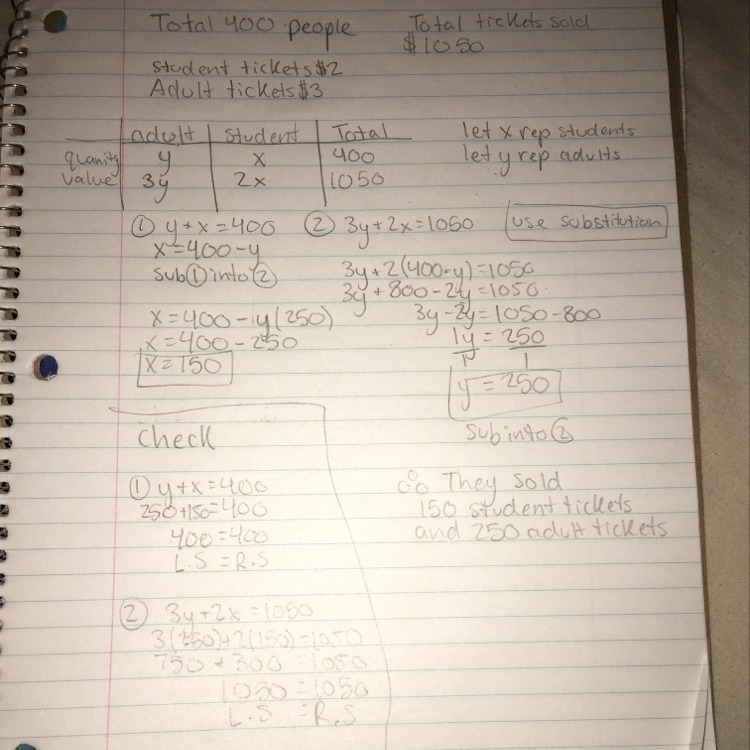 Total 400 people
Total tickets sold
$1050
Student tickets $2
Adult tickets $3
adult Student Total
quanity y x 400
value 3y 2x 1050
let x rep students
let y rep adults
① y+x=400
x=400-y
sub ① into ②
② 3y+2x=1050
use substitution
3y+2(400-y)=1050
3y+800-2y=1050
3y-2y=1050-800
1y = 250
1 1
y = 250
sub into ②
x=400-1y(250)
x=400-250
x=150
check
① y+x=400
250+150=400
400=400
L.S = R.S
② 3y+2x=1050
3(250)+2(150)=1050
750+300=1050
1050=1050
L.S = R.S
∴ They sold
150 student tickets
and 250 adult tickets